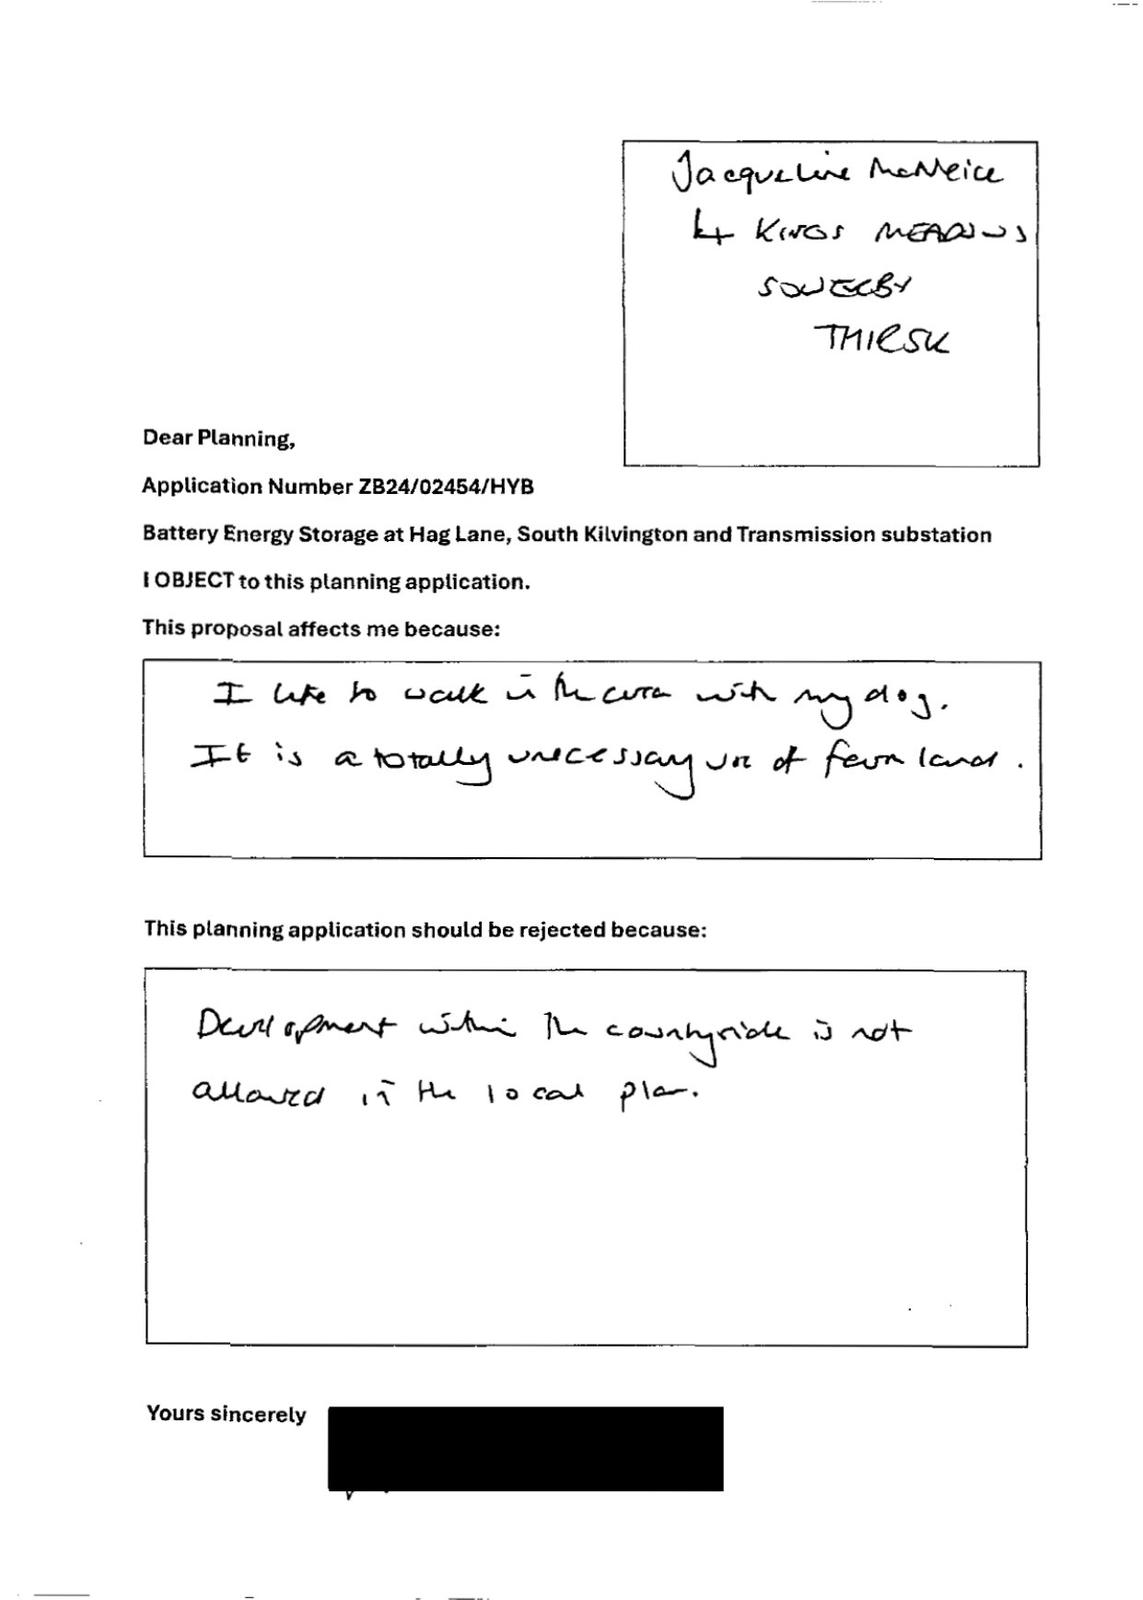 Jacqueline McNeice
4 KINGS MEADOWS
SOWERBY
THIRSK
Dear Planning,
Application Number ZB24/02454/HYB
Battery Energy Storage at Hag Lane, South Kilvington and Transmission substation
I OBJECT to this planning application.
This proposal affects me because:
I like to walk in the area with my dog.
It is a totally unecessary use of farm land.
This planning application should be rejected because:
Development within the countryside is not
allowed in the local plan.
Yours sincerely